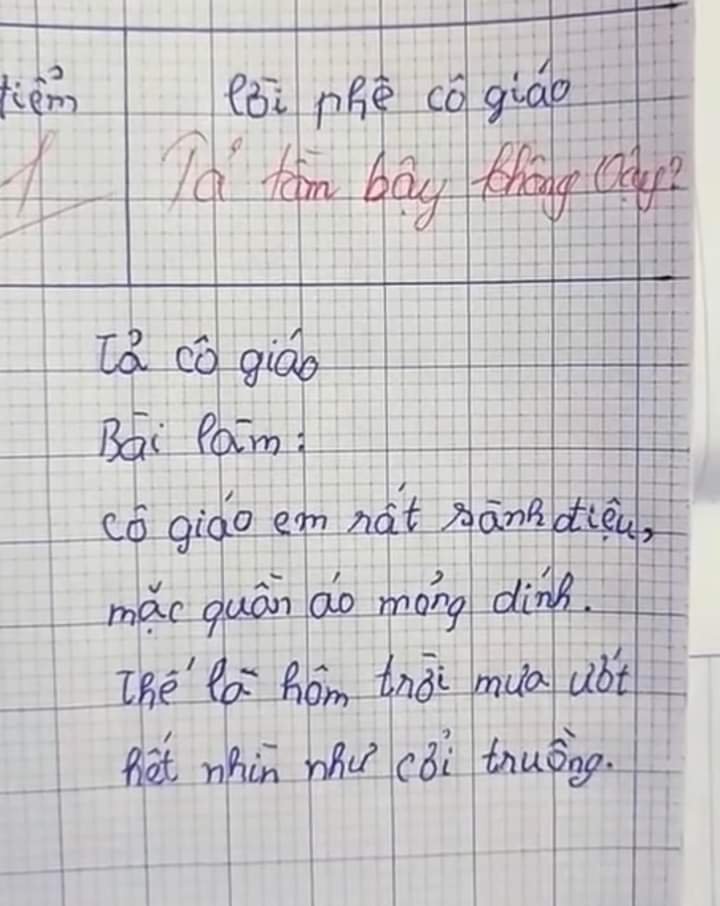 điểm
lời phê cô giáo
1
Tả tầm bậy không vậy?
Tả cô giáo
Bài làm:
cô giáo em rất sành điệu,
mặc quần áo mỏng dính.
Thế là hôm trời mưa ướt
hết nhìn như cởi truồng.